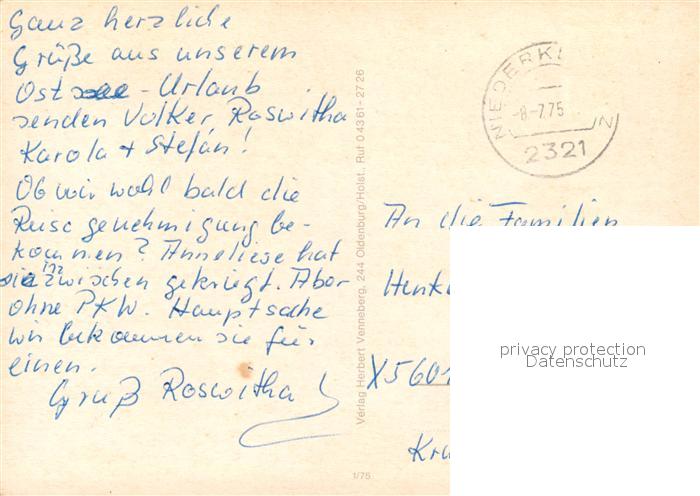 Ganz herzliche
Grüße aus unserem
Ostsee - Urlaub
senden Volker, Roswitha
Karola + Stefan!
Ob wir wohl bald die
Reisegenehmigung be-
kommen? Anneliese hat
sie inzwischen gekriegt. Aber
ohne PKW. Hauptsache
wir bekommen sie für
einen.
Gruß Roswitha
Verlag Herbert Venneberg, 244 Oldenburg/Holst., Ruf 0 43 61 - 27 26
1/75
NIEDERKL
-8.-7.75
N
2321
An die Familien
Henk
X5601
Kr
privacy protection
Datenschutz